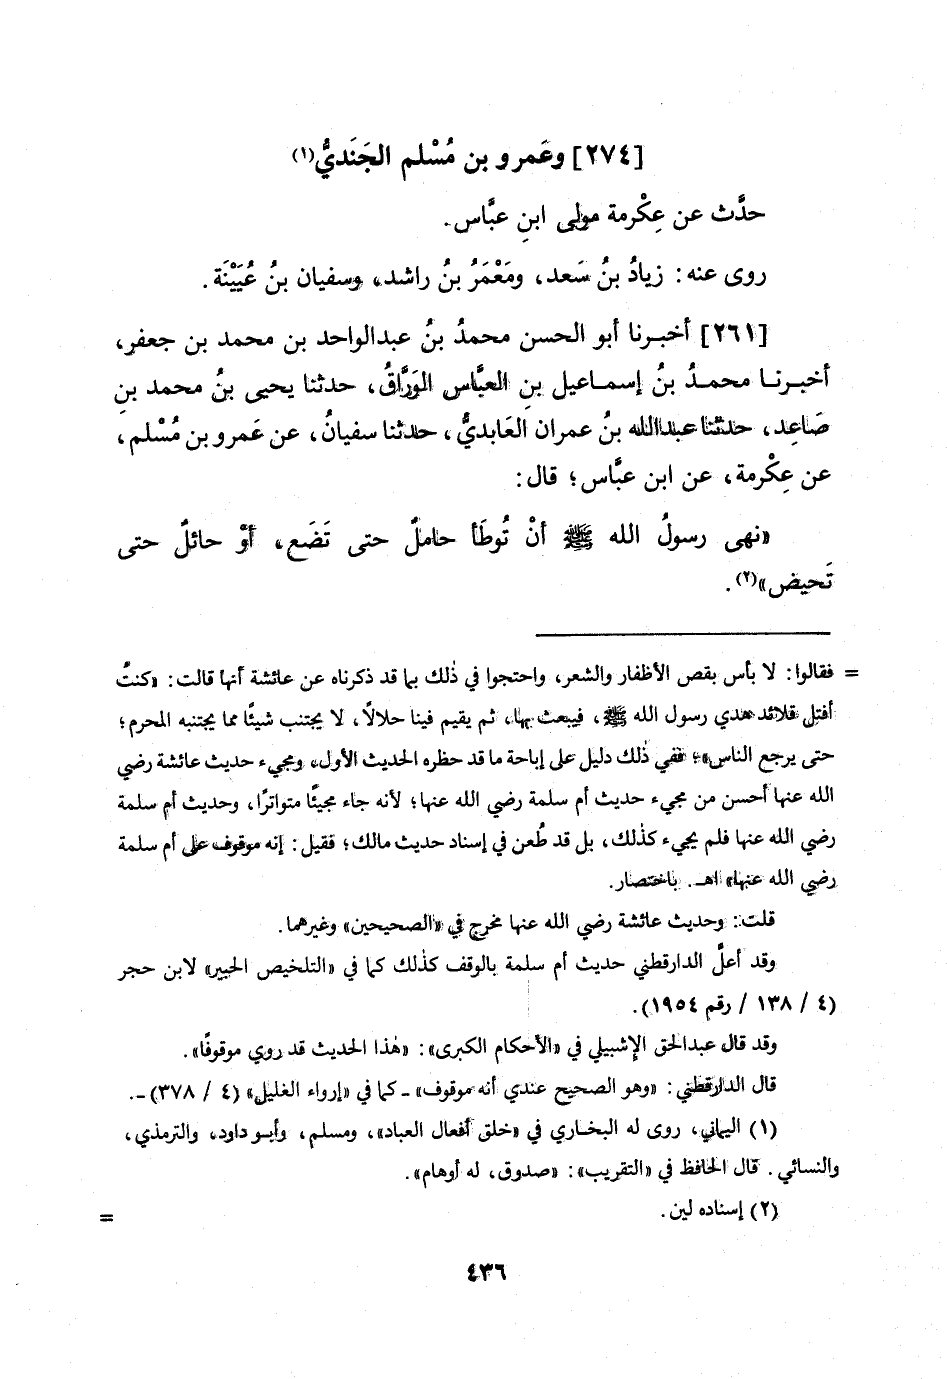 [٢٧٤] وعَمرو بن مُسْلم الجَنَديُّ(١)
حدَّث عن عِكْرمة مولى ابنِ عبَّاس.
روى عنه: زيادُ بنُ سَعد، ومَعْمَرُ بنُ راشد، وسفيان بنُ عُيَيْنَة.
[٢٦١] أخبرنا أبو الحسن محمدُ بنُ عبدالواحد بن محمد بن جعفر،
أخبرنا محمدُ بنُ إسماعيل بنِ العبَّاس الوَرَّاقُ، حدثنا يحيى بنُ محمد بنِ
صَاعِد، حدثنا عبدالله بنُ عمران العَابديُّ، حدثنا سفيانُ، عن عَمرو بن مُسْلم،
عن عِكْرمة، عن ابن عبَّاس؛ قال:
«نهى رسولُ الله ﷺ أنْ تُوطَأ حاملٌ حتى تَضَع، أوْ حائلٌ حتى
تَحيض»(٢).
= فقالوا: لا بأس بقص الأظفار والشعر، واحتجوا في ذٰلك بما قد ذكرناه عن عائشة أنها قالت: «كنتُ
أفتل قلائد هدي رسول الله ﷺ، فيبعث بها، ثم يقيم فينا حلالًا، لا يجتنب شيئًا مما يجتنبه المحرم؛
حتى يرجع الناس»؛ ففي ذٰلك دليل على إباحة ما قد حظره الحديث الأول، ومجيء حديث عائشة رضي
الله عنها أحسن من مجيء حديث أم سلمة رضي الله عنها؛ لأنه جاء مجيئًا متواترًا، وحديث أم سلمة
رضي الله عنها فلم يجيء كذٰلك، بل قد طُعن في إسناد حديث مالك؛ فقيل: إنه موقوف على أم سلمة
رضي الله عنها» اهـ. باختصار.
قلت: وحديث عائشة رضي الله عنها مخرج في «الصحيحين» وغيرهما.
وقد أعلَّ الدارقطني حديث أم سلمة بالوقف كذٰلك كما في «التلخيص الحبير» لابن حجر
(٤ / ١٣٨ / رقم ١٩٥٤).
وقد قال عبدالحق الإشبيلي في «الأحكام الكبرى»: «هٰذا الحديث قد روي موقوفًا».
قال الدارقطني: «وهو الصحيح عندي أنه موقوف» ـ كما في «إرواء الغليل» (٤ / ٣٧٨) ـ.
(١) اليماني، روى له البخاري في «خلق أفعال العباد»، ومسلم، وأبو داود، والترمذي،
والنسائي. قال الحافظ في «التقريب»: «صدوق، له أوهام».
(٢) إسناده لين. =
٤٣٦